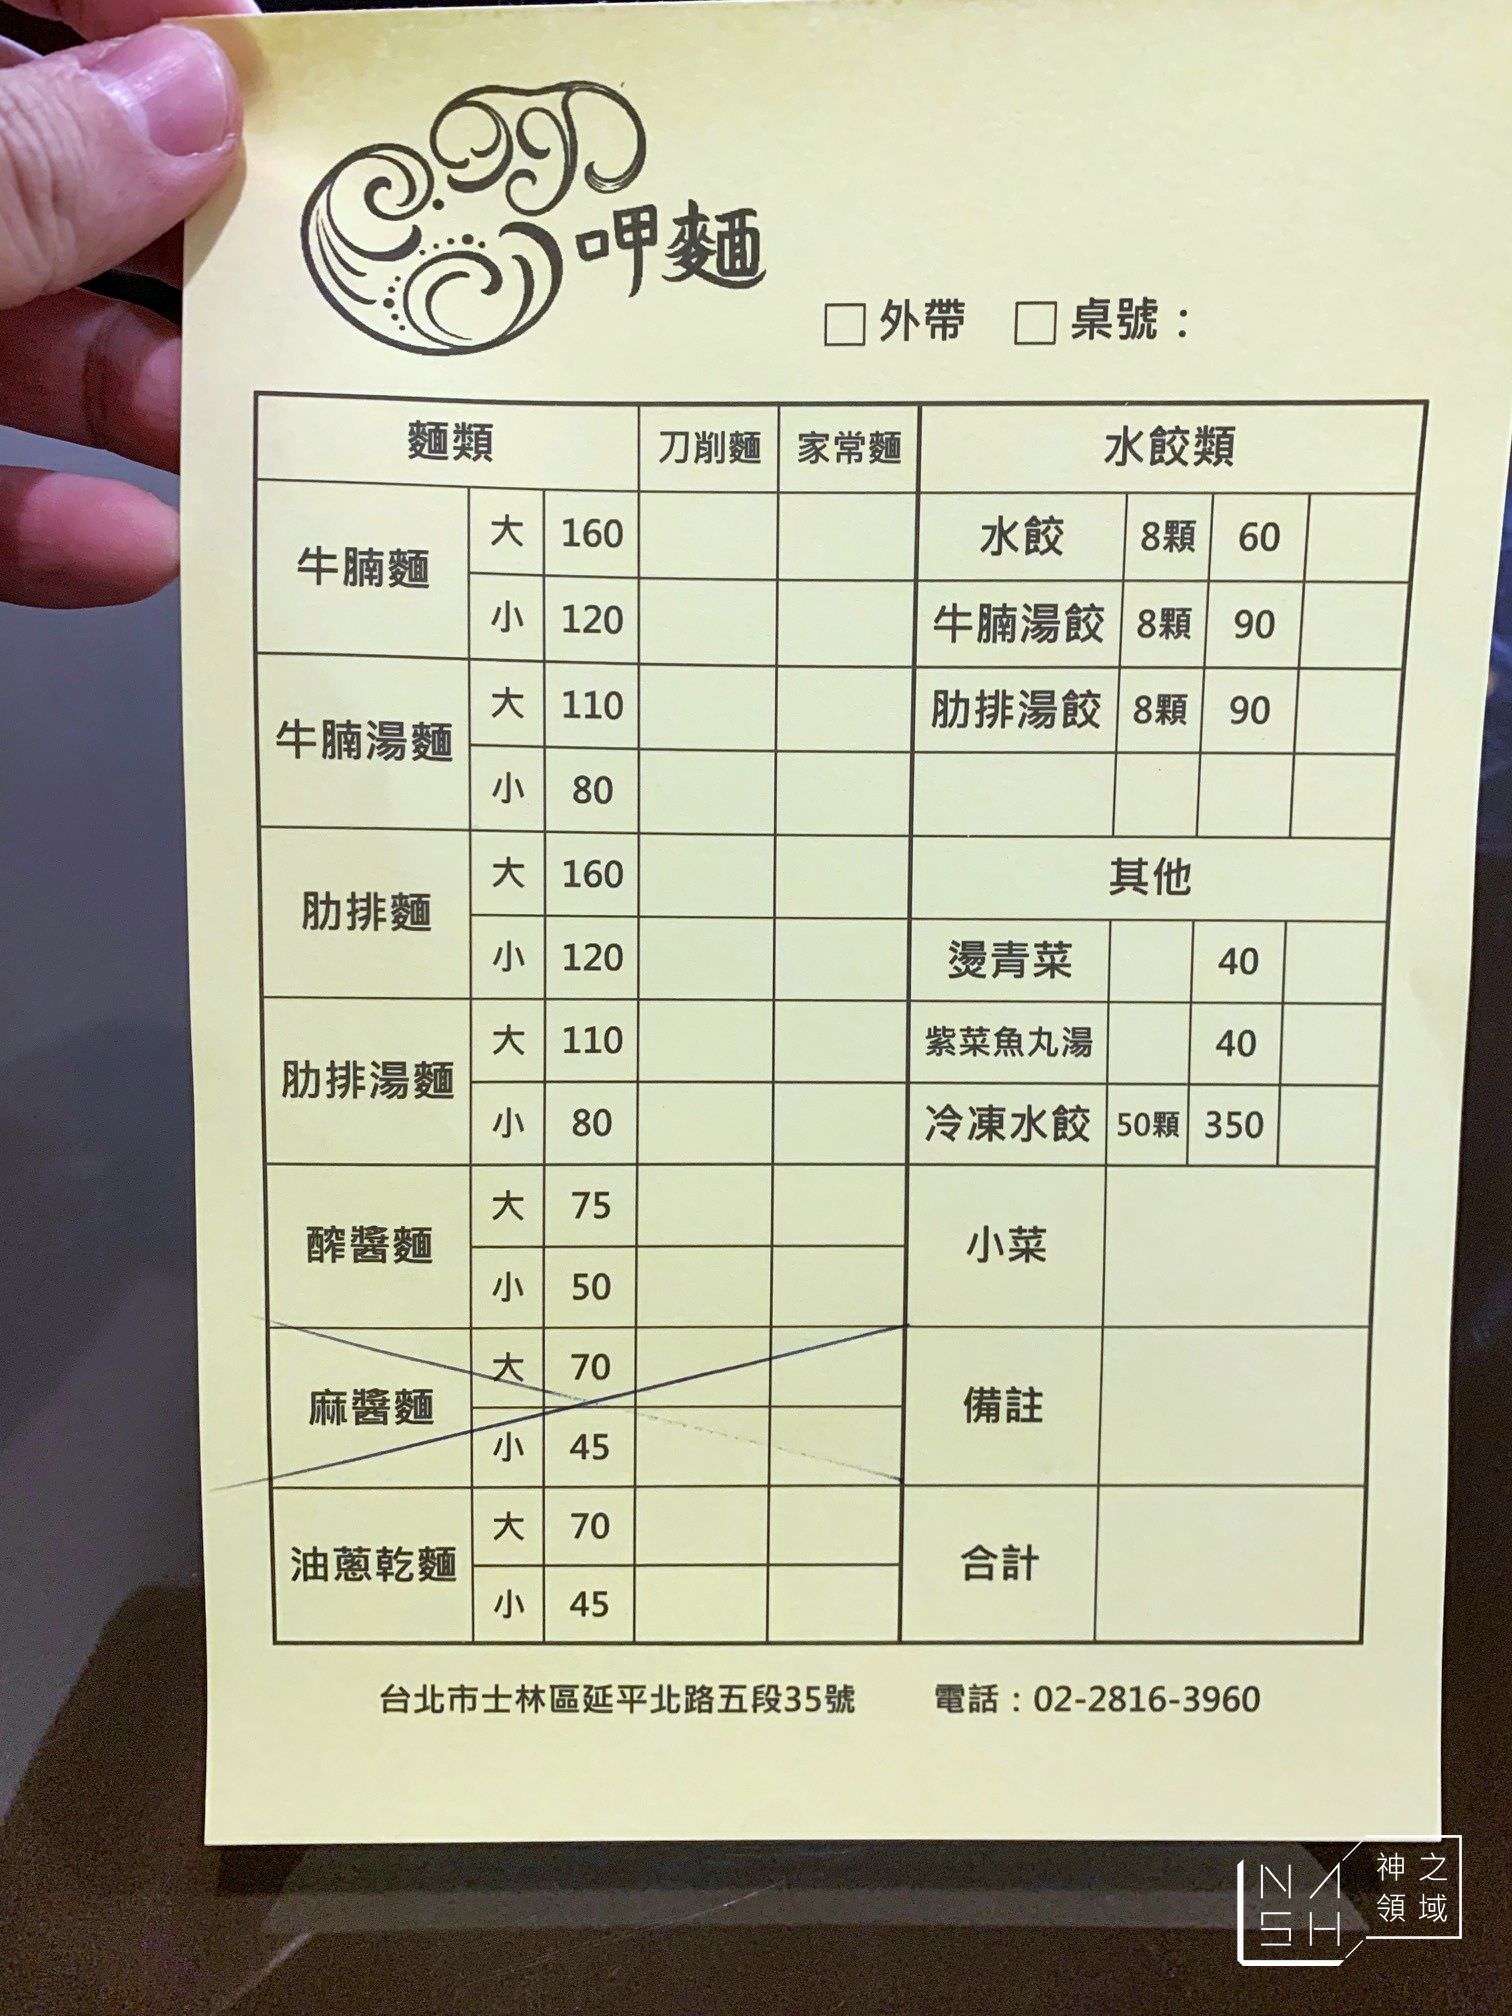 呷麵
□外帶 □桌號：
麵類 刀削麵 家常麵 水餃類
牛腩麵 大 160
小 120
牛腩湯麵 大 110
小 80
肋排麵 大 160
小 120
肋排湯麵 大 110
小 80
醡醬麵 大 75
小 50
麻醬麵 大 70
小 45
油蔥乾麵 大 70
小 45
水餃 8顆 60
牛腩湯餃 8顆 90
肋排湯餃 8顆 90
其他
燙青菜 40
紫菜魚丸湯 40
冷凍水餃 50顆 350
小菜
備註
合計
台北市士林區延平北路五段35號 電話：02-2816-3960
NASH
神之領域